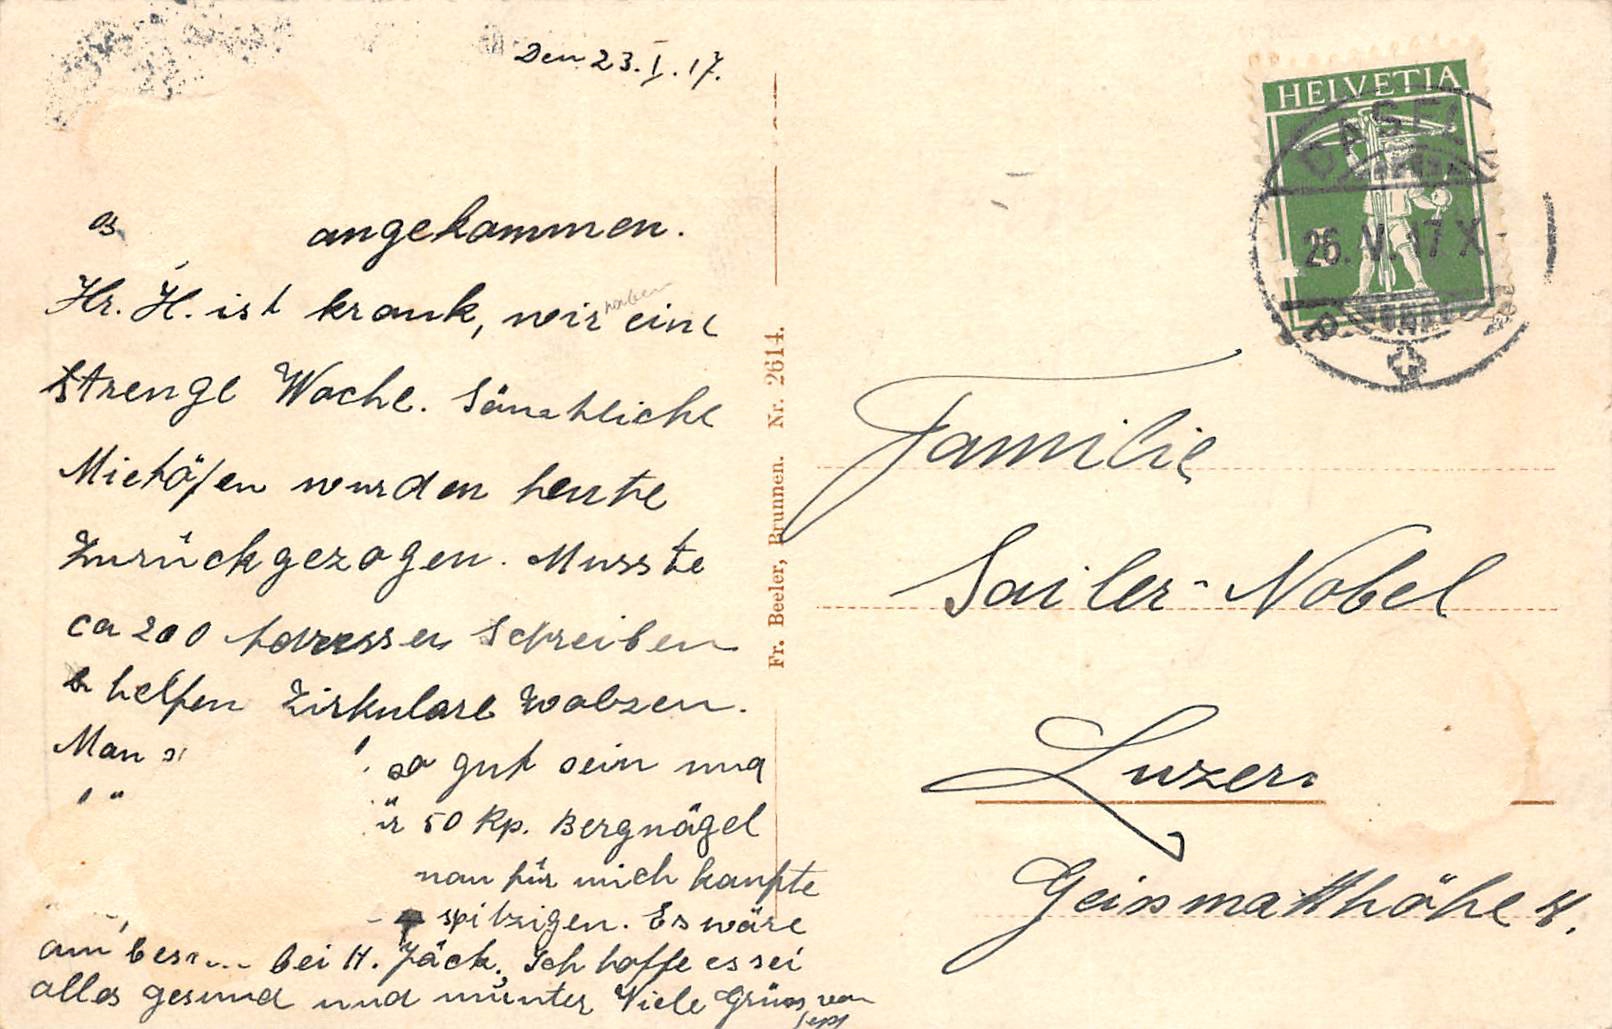 Den 23. I. 17.
angekommen.
Hr. H. ist krank, wir haben eine
strenge Woche. Sämtliche
Mietöfen wurden heute
zurückgezogen. Musste
ca 200 Adressen schreiben
& helfen Zirkulare
Man so gut sein und
50 Rp. Bergnägel
man für mich kaufte
spitzigen. Es wäre
am bei H. Jäck. Ich hoffe es sei
alles gesund und munter Viele Grüss von
Fr. Beeler, Brunnen. Nr. 2614.
HELVETIA
BASEL
26. V. 17 X
Familie
Sailer-Nobel
Luzern
Geissmatthöhe